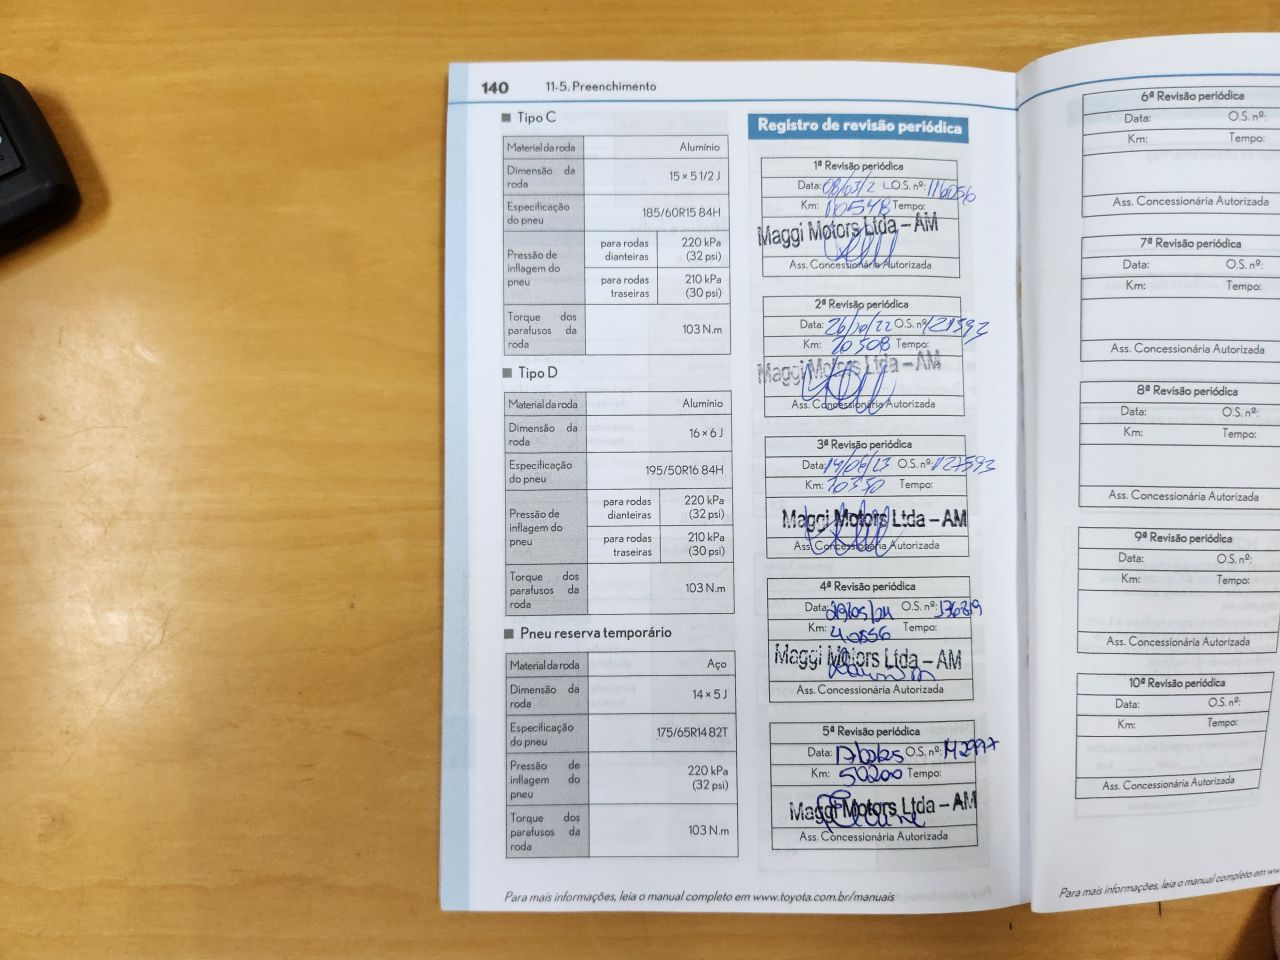 140 11-5. Preenchimento
Tipo C
Material da roda Alumínio
Dimensão da roda 15 × 5 1/2 J
Especificação do pneu 185/60R15 84H
Pressão de inflagem do pneu
para rodas dianteiras 220 kPa (32 psi)
para rodas traseiras 210 kPa (30 psi)
Torque dos parafusos da roda 103 N.m
Tipo D
Material da roda Alumínio
Dimensão da roda 16 × 6 J
Especificação do pneu 195/50R16 84H
Pressão de inflagem do pneu
para rodas dianteiras 220 kPa (32 psi)
para rodas traseiras 210 kPa (30 psi)
Torque dos parafusos da roda 103 N.m
Pneu reserva temporário
Material da roda Aço
Dimensão da roda 14 × 5 J
Especificação do pneu 175/65R14 82T
Pressão de inflagem do pneu 220 kPa (32 psi)
Torque dos parafusos da roda 103 N.m
Registro de revisão periódica
1ª Revisão periódica
Data: O.S. nº: 116056
Km: 10548 Tempo:
Maggi Motors Ltda – AM
Ass. Concessionária Autorizada
2ª Revisão periódica
Data: 26/10/22 O.S. nº: 121392
Km: 20508 Tempo:
Maggi Motors Ltda – AM
Ass. Concessionária Autorizada
3ª Revisão periódica
Data: 14/06/23 O.S. nº: 127593
Km: Tempo:
Maggi Motors Ltda – AM
Ass. Concessionária Autorizada
4ª Revisão periódica
Data: O.S. nº: 136819
Km: 40556 Tempo:
Maggi Motors Ltda – AM
Ass. Concessionária Autorizada
5ª Revisão periódica
Data: O.S. nº: 142997
Km: 50200 Tempo:
Maggi Motors Ltda – AM
Ass. Concessionária Autorizada
Para mais informações, leia o manual completo em www.toyota.com.br/manuais
6ª Revisão periódica
Data: O.S. nº:
Km: Tempo:
Ass. Concessionária Autorizada
7ª Revisão periódica
Data: O.S. nº:
Km: Tempo:
Ass. Concessionária Autorizada
8ª Revisão periódica
Data: O.S. nº:
Km: Tempo:
Ass. Concessionária Autorizada
9ª Revisão periódica
Data: O.S. nº:
Km: Tempo:
Ass. Concessionária Autorizada
10ª Revisão periódica
Data: O.S. nº:
Km: Tempo:
Ass. Concessionária Autorizada
Para mais informações, leia o manual completo em